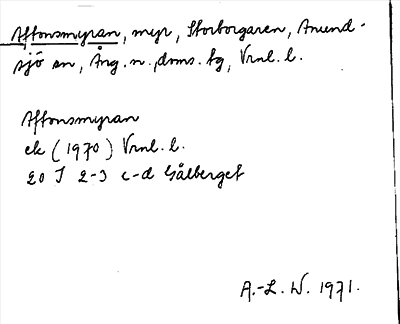 Aftonsmyran, myr, Storborgaren, Anund-
sjö sn, Ång. n. doms. fg, Vrnl. l.
Aftonsmyran
ek (1970) Vrnl. l.
20 I 2-3 c-d Gålberget
A.-L. W. 1971.